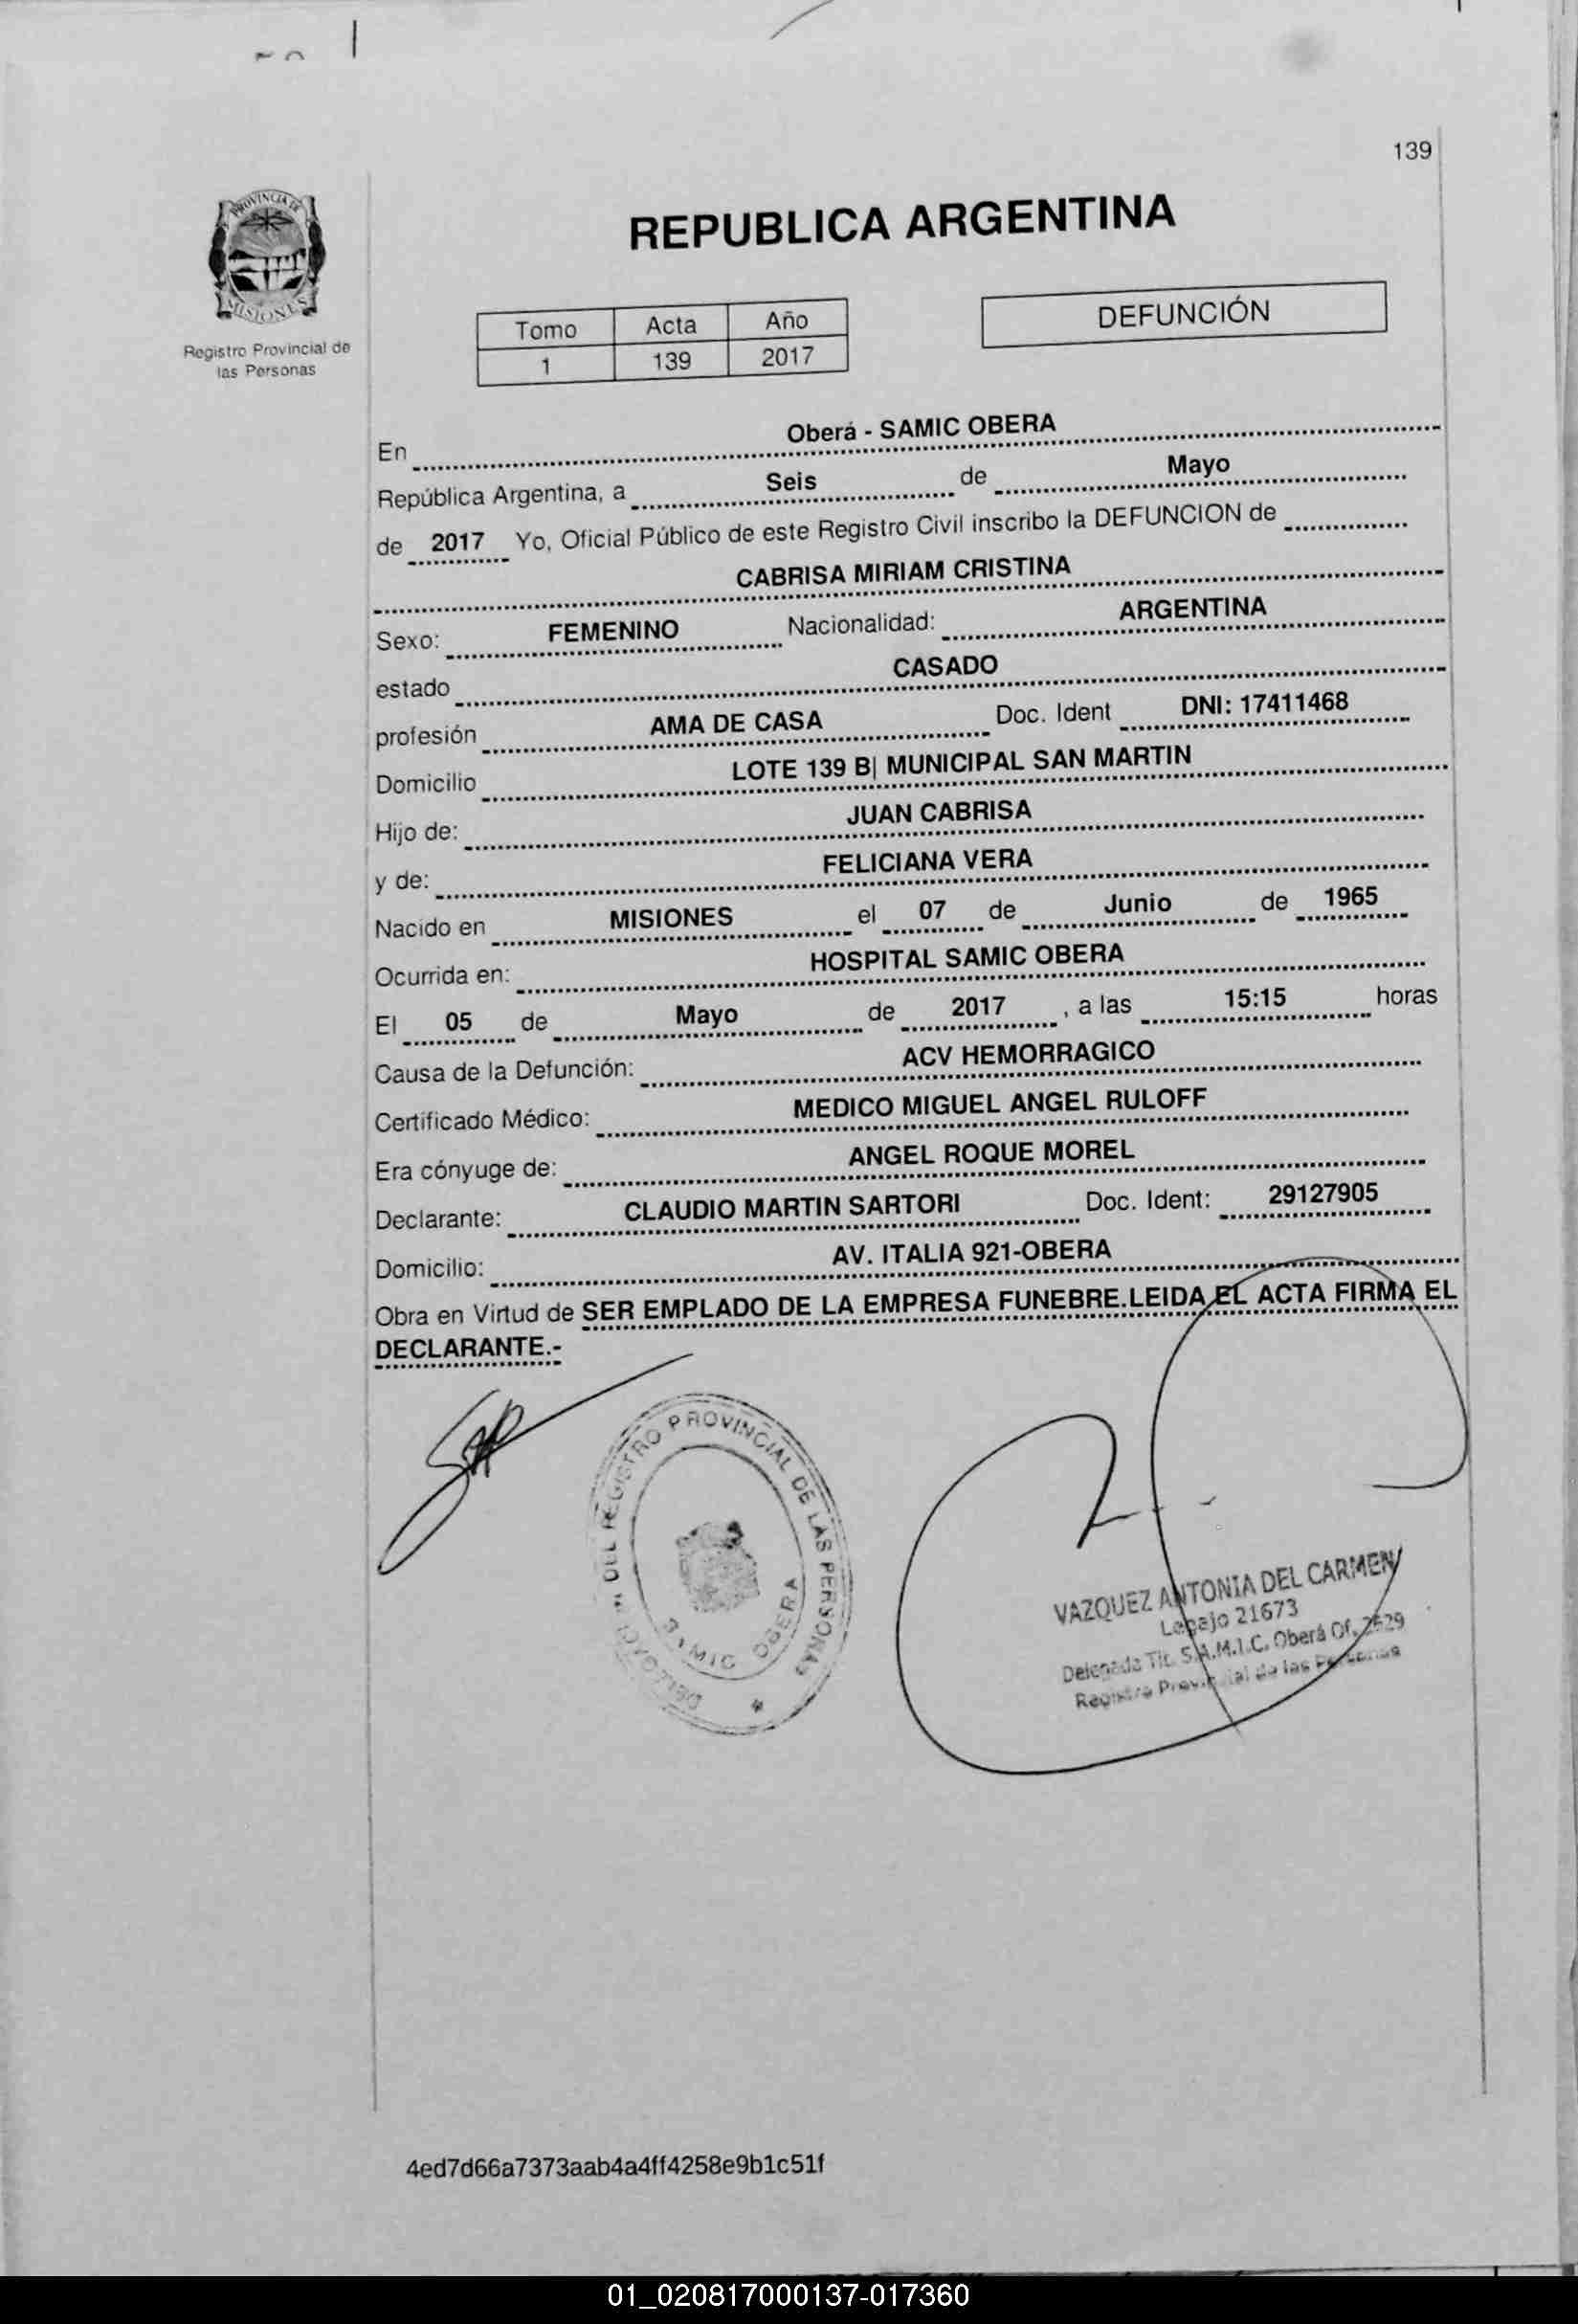 139
PROVINCIA DE
MISIONES
Registro Provincial de
las Personas
REPUBLICA ARGENTINA
Tomo Acta Año
1 139 2017
DEFUNCIÓN
En Oberá - SAMIC OBERA
República Argentina, a Seis de Mayo
de 2017 Yo, Oficial Público de este Registro Civil inscribo la DEFUNCION de
CABRISA MIRIAM CRISTINA
Sexo: FEMENINO Nacionalidad: ARGENTINA
estado CASADO
profesión AMA DE CASA Doc. Ident DNI: 17411468
Domicilio LOTE 139 B| MUNICIPAL SAN MARTIN
Hijo de: JUAN CABRISA
y de: FELICIANA VERA
Nacido en MISIONES el 07 de Junio de 1965
Ocurrida en: HOSPITAL SAMIC OBERA
El 05 de Mayo de 2017 , a las 15:15 horas
Causa de la Defunción: ACV HEMORRAGICO
Certificado Médico: MEDICO MIGUEL ANGEL RULOFF
Era cónyuge de: ANGEL ROQUE MOREL
Declarante: CLAUDIO MARTIN SARTORI Doc. Ident: 29127905
Domicilio: AV. ITALIA 921-OBERA
Obra en Virtud de SER EMPLADO DE LA EMPRESA FUNEBRE.LEIDA EL ACTA FIRMA EL
DECLARANTE.-
DEL REGISTRO PROVINCIAL DE LAS PERSONAS
SAMIC OBERA
VAZQUEZ ANTONIA DEL CARMEN
Legajo 21673
Delegada Tit. S.A.M.I.C. Oberá Of. 2629
Registro Provincial de las Personas
4ed7d66a7373aab4a4ff4258e9b1c51f
01_020817000137-017360